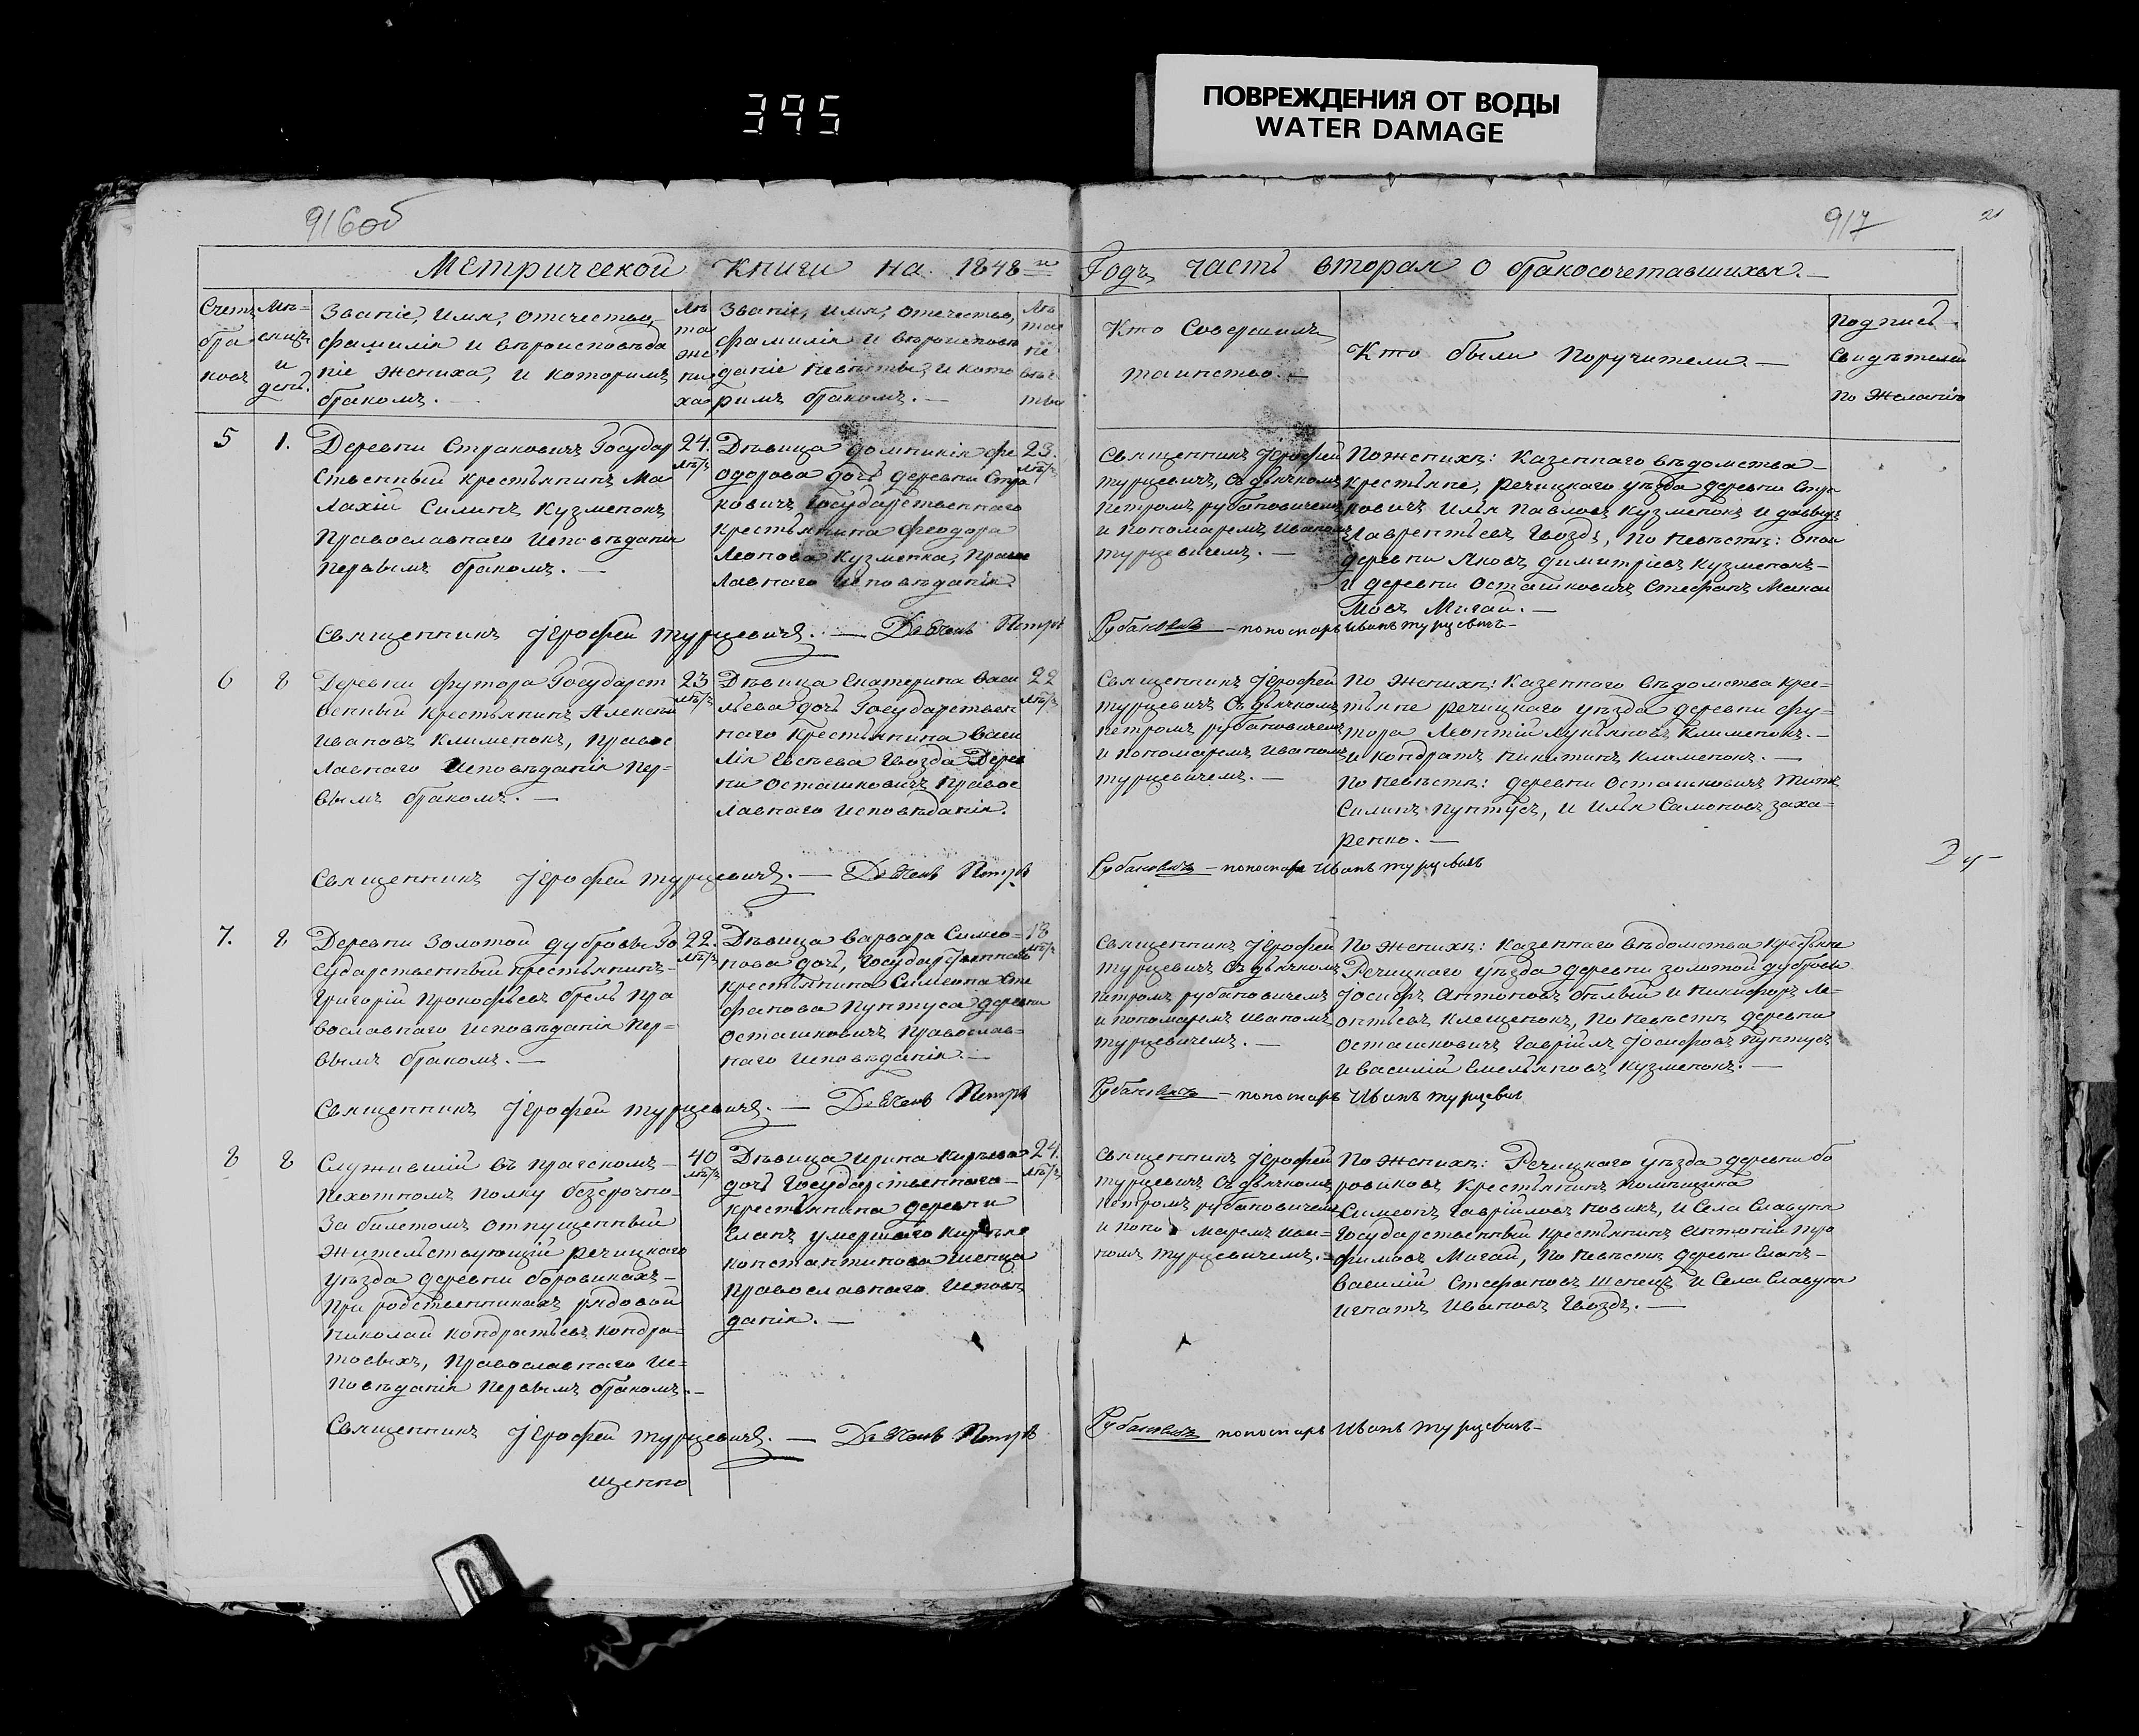 395
ПОВРЕЖДЕНИЯ ОТ ВОДЫ
WATER DAMAGE
916об
917
21
Метрической Книги на 1848й Годъ, часть вторая о бракосочетавшихся.—
Счетъ браковъ
Мѣсяцъ и день.
Званіе, Имя, отчество,
фамилія и вѣроисповѣда
ніе жениха, и которимъ
бракомъ.—
Лѣта жениха
Званіе, Имя, отчество,
фамилія и вѣроисповѣ
даніе невѣсты, и кото
римъ бракомъ.—
Лѣта невѣсты
Кто Совершилъ
таинство.—
Кто были Поручители—
Подпись
Свидѣтелей
по желанію
5
1.
Деревни Страковичъ Государ
Ственный Крестьянинъ Ма
лахій Силинъ Кузменокъ
Православнаго Исповѣданія
Первымъ бракомъ.—
24.
лѣтъ
Дѣвица Домникія Фе
одорова дочь деревни Стра
ковичъ Государственнаго
Крестьянина Феодора
Леонова Кузменка, Правос
лавнаго Исповѣданія.
23.
лѣтъ
Священникъ Јерофей
Турцевичъ, Съ дьячкомъ
Петромъ Рубановичемъ
и Пономаремъ Иваномъ
Турцевичемъ.—
По женихѣ: Казеннаго вѣдомства
крестьяне, Речицкаго уѣзда деревни Стра
ковичъ Илья Павловъ Кузменокъ и Давидъ
Лаврентьевъ Гвоздь, По Невѣстѣ: Оной
деревни Яковъ Димитріевъ Кузменокъ
и деревни Осташковичъ Стефанъ
Мигай.—
Священникъ Јерофей Турцевичъ.— Дьячекъ Петръ Рубановичъ — пономарь Иванъ Турцевичъ—
6
8
Деревни Футора Государст
венный Крестьянинъ Алексѣй
Ивановъ Клименокъ, Правос
лавнаго Исповѣданія Пер=
вымъ бракомъ.—
23
лѣтъ
Дѣвица Екатерина Васи
льева дочь Государствен
наго Крестьянина Васи
лія Евсѣева Гвозда Дерев
ни Осташковичъ Правос
лавнаго Исповѣданія.
22
лѣтъ
Священникъ Јерофей
Турцевичъ Съ дьячкомъ
Петромъ Рубановичемъ
и Пономаремъ Иваномъ
Турцевичемъ.—
По Женихѣ: Казеннаго вѣдомства Крес=
тьяне Речицкаго уѣзда деревни Фу=
тора Леонтій Лукьяновъ Клименокъ.—
и Кондратъ Никитинъ Клименокъ.—
По Невѣстѣ: деревни Осташковичъ
Силинъ Пунтусъ, и Илья Самоновъ Заха=
ренко.—
2 у—
Священникъ Јерофей Турцевичъ.— Дьячекъ Петръ Рубановичъ — пономарь Иванъ Турцевичъ
7.
8
Деревни Золотой Дубровы Го
сударственный крестьянинъ
Григорій Прокофьевъ Брель Пра
вославнаго Исповѣданія Пер=
вымъ бракомъ.—
22.
лѣтъ
Дѣвица Варвара Симео=
нова дочь, Государственнаго
крестьянина Симеона Сте
фанова Пунтуса деревни
Осташковичъ Православ=
наго Исповѣданія.—
18
лѣтъ
Священникъ Јерофей
Турцевичъ Съ дьячкомъ
Петромъ Рубановичемъ
и Пономаремъ Иваномъ
Турцевичемъ.—
По Женихѣ: Казеннаго вѣдомства Крестьяне
Речицкаго уѣзда деревни Золотой Дубровы
Јосифъ Антоновъ Бѣлый и Никифоръ Ле=
онтьевъ Клещенокъ, По Невѣстѣ деревни
Осташковичъ Гавріилъ Јосифовъ Пунтусъ
и Василій Емельяновъ Кузменокъ.—
Священникъ Јерофей Турцевичъ.— Дьячекъ Петръ Рубановичъ — пономарь Иванъ Турцевичъ
8
8
Служившій въ Прагскомъ
Пехотномъ Полку безсрочно
За билетомъ отпущенный
Жительствующій Речицкаго
уѣзда деревни Боровикахъ
При родственникахъ рядовой
Николай Кондратьевъ Кондра=
тьевыхъ, Православнаго Ис=
повѣданія Первымъ бракомъ.—
40
лѣтъ
Дѣвица Ирина Карпова
дочь Государственнаго
Крестьянина деревни
Еланъ умершаго
Константинова Шепца
Православнаго Исповѣ
данія.—
24.
лѣтъ
Священникъ Јерофей
Турцевичъ Съ дьячкомъ
Петромъ Рубановичемъ
и Поно маремъ Ива=
номъ Турцевичемъ.=
По Женихѣ: Речицкаго уѣзда деревни Бо
ровиковъ Крестьянинъ Помѣщика
Симеонъ Гавріиловъ Новикъ, и Села Славуня
Государственный Крестьянинъ Антоній Тро
фимовъ Мигай, По Невѣстѣ деревни Еланъ
Василій Стефановъ Шепецъ и Села Славуня
Игнатъ Ивановъ Гвоздь.—
Священникъ Јерофей Турцевичъ.— Дьячекъ Петръ Рубановичъ пономарь Иванъ Турцевичъ—
щенно